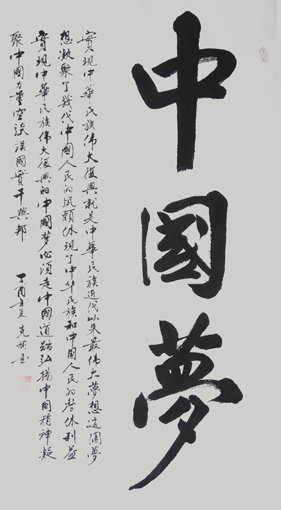 中國夢
實現中華民族偉大復興就是中華民族近代以來最偉大夢想這個夢
想凝聚了幾代中國人民的夙願体現了中华民族和中國人民的整体利益
實現中華民族偉大復興的中國夢必須走中國道路弘揚中國精神凝
聚中國力量空談誤國實干興邦
丁酉年夏克